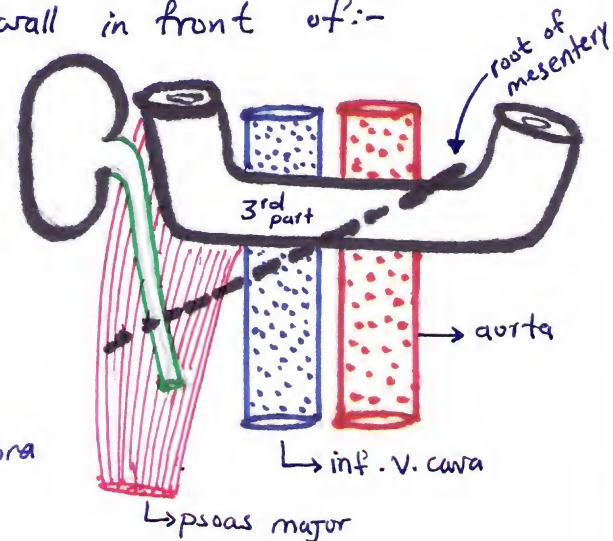 wall in front of:-
root of
mesentery
3rd
part
aorta
inf. v. cava
psoas major